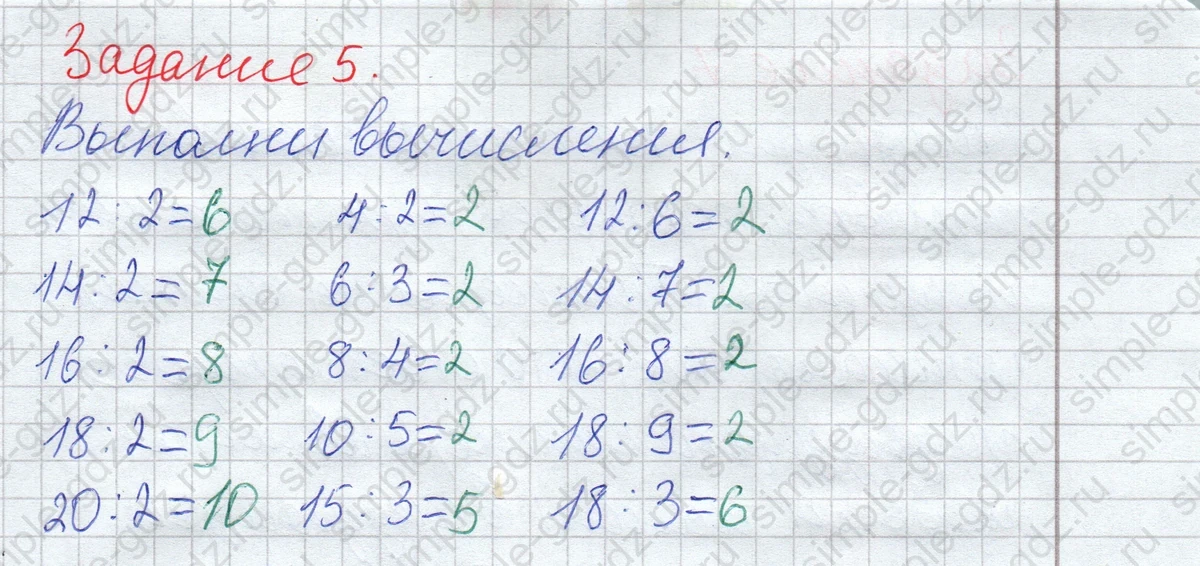 Задание 5.
Выполни вычисления.
12 : 2 = 6 4 : 2 = 2 12 : 6 = 2
14 : 2 = 7 6 : 3 = 2 14 : 7 = 2
16 : 2 = 8 8 : 4 = 2 16 : 8 = 2
18 : 2 = 9 10 : 5 = 2 18 : 9 = 2
20 : 2 = 10 15 : 3 = 5 18 : 3 = 6
simple-gdz.ru